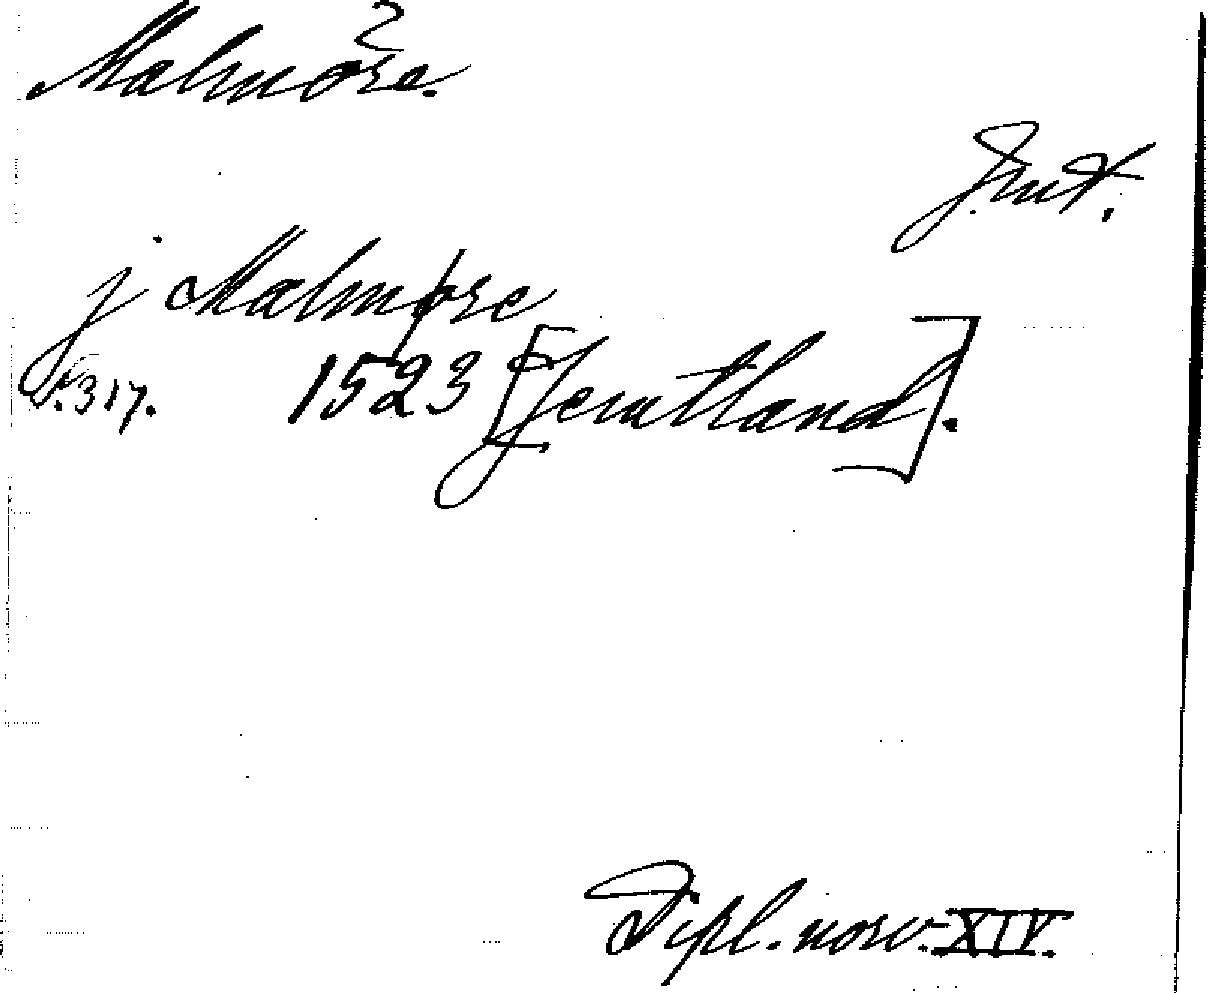 Malmöre.
Jmt.
j Malmøre
s. 317. 1523 [Jemtland].
Dipl. norv. XIV.